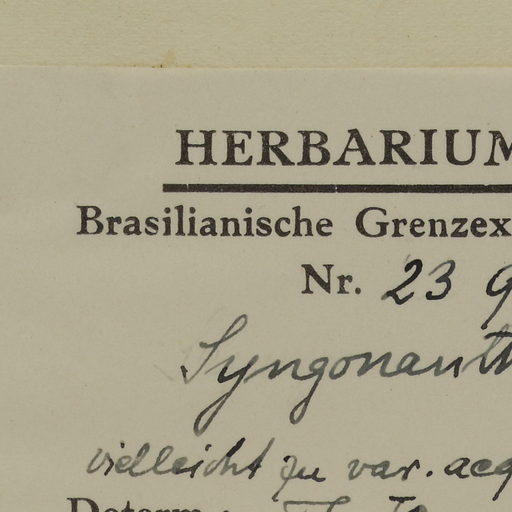 HERBARIUM
Brasilianische Grenzex
Nr. 23 9
Syngonanth
vielleicht zu var. aeq
Determ.: